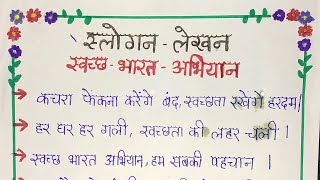 स्लोगन - लेखन
स्वच्छ - भारत - अभियान
कचरा फेंकना करेंगे बंद, स्वच्छता रखेंगे हरदम।
हर घर हर गली, स्वच्छता की लहर चली।
स्वच्छ भारत अभियान, हम सबकी पहचान।